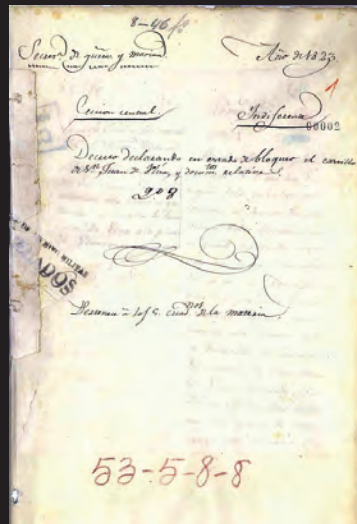 8-46
Secret.ª de guerra y marina.
Año de 1823
1
Seccion central.
Indiferente
00002
Decreto declarando en estado de bloqueo el castillo
de S.n Juan de Ulua, y docum.tos relativos.
208
MILITAR
de la marina.
53-5-8-8